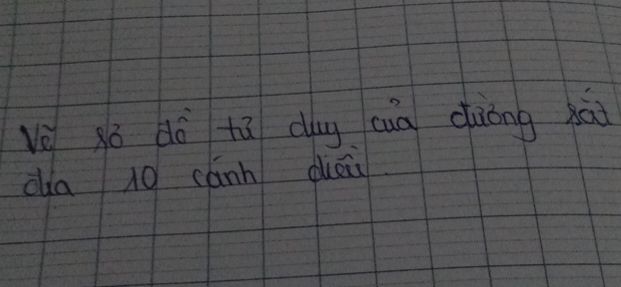 Vẽ sơ đồ tư duy của đường sắt
địa 10 cánh diều